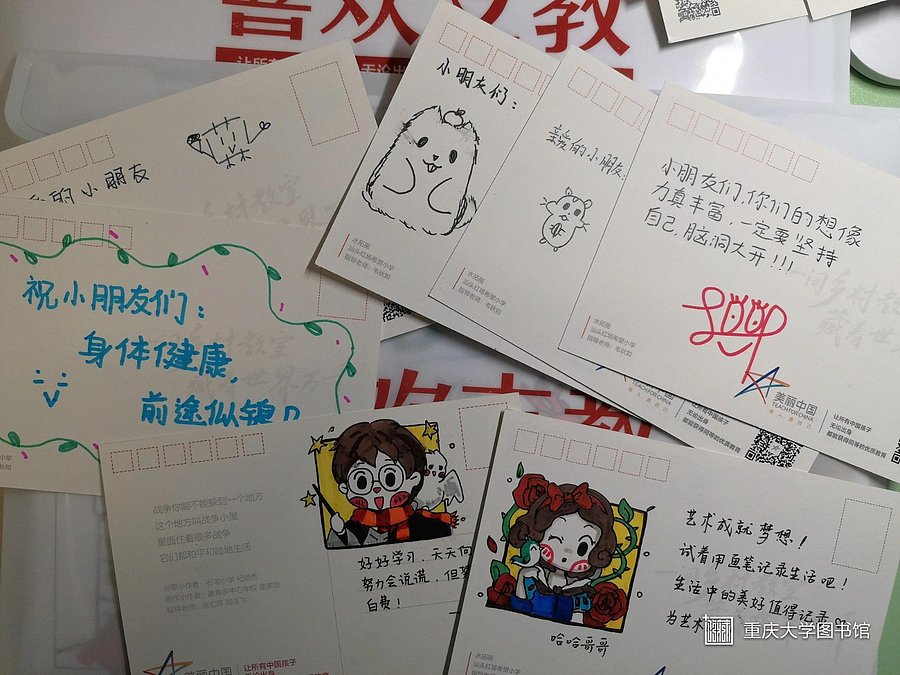 喜欢支教
小朋友们：
亲爱的小朋友
的小朋友
小朋友们,你们的想像
力真丰富,一定要坚持
自己,脑洞大开!!!
水拓画
汕头红场希望小学
指导老师：韦秋如
水拓画
汕头红场希望小学
指导老师：韦秋如
水拓画
汕头红场希望小学
指导老师：韦秋如
美丽中国
TEACH FOR CHINA
让所有中国孩子
无论出身
都能获得同等的优质教育
祝小朋友们：
身体健康,
前途似锦
战争你能不能躲到一个地方
这个地方叫战争小屋
里面住着很多战争
它们都和平和谐地生活
好好学习,天天向
努力会说谎,但努
白费!
美丽中国
让所有中国孩子
艺术成就梦想!
试着用画笔记录生活吧!
生活中的美好值得记录
为艺术
哈哈哥哥
水拓画
汕头红场希望小学
重庆大学图书馆